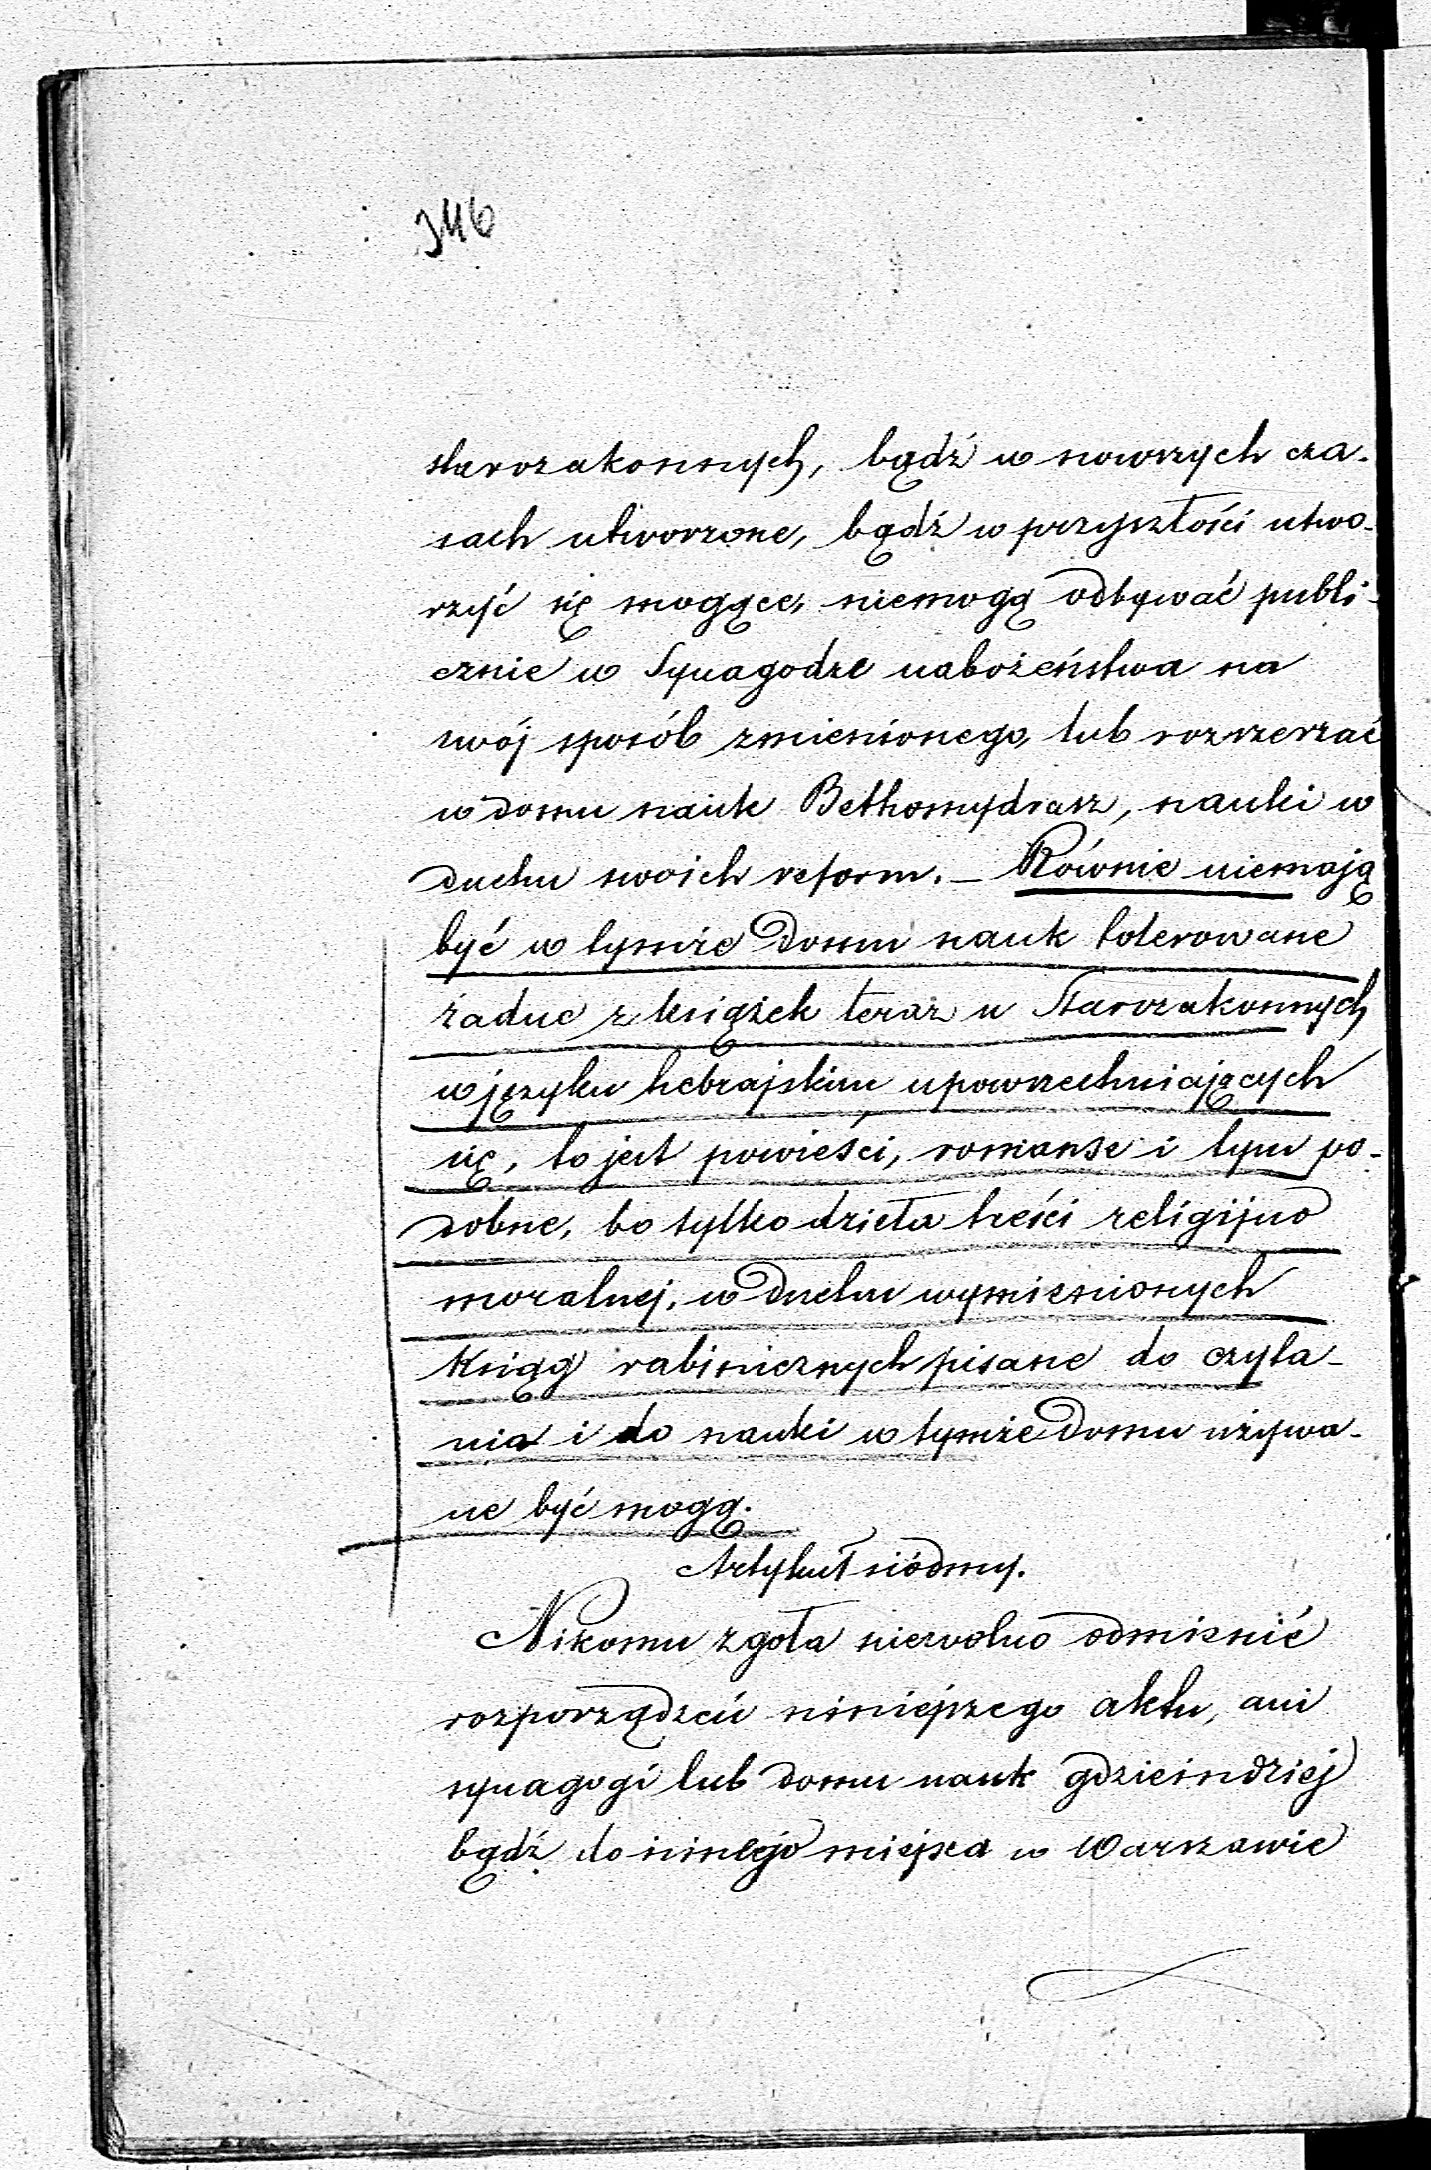 346
starozakonnych, bądź w nowszych cza-
sach utworzone, bądź w przyszłości utwo-
rzyć się mogące, niemogą odbywać publi-
cznie w Synagodze nabożeństwa na
swój sposób zmienionego, lub rozszerzać
w domu nauk Bethomydrasz, nauki w
duchu swoich reform. — Równie niemają
być w tymże Domu nauk tolerowane
żadne z książek teraz u Starozakonnych
w języku hebrajskim upowszechniających
się, to jest powieści, romanse i tym po-
dobne, bo tylko dzieła treści religijno
moralnej, w Duchu wymienionych
Ksiąg rabinicznych pisane do czyta-
nia i do nauki w tymże Domu używa-
ne być mogą.
Artykuł siódmy.
Nikomu zgoła niewolno odmienić
rozporządzeń niniejszego aktu, ani
synagogi lub domu nauk gdzieindziej
bądź do innego miejsca w Warszawie